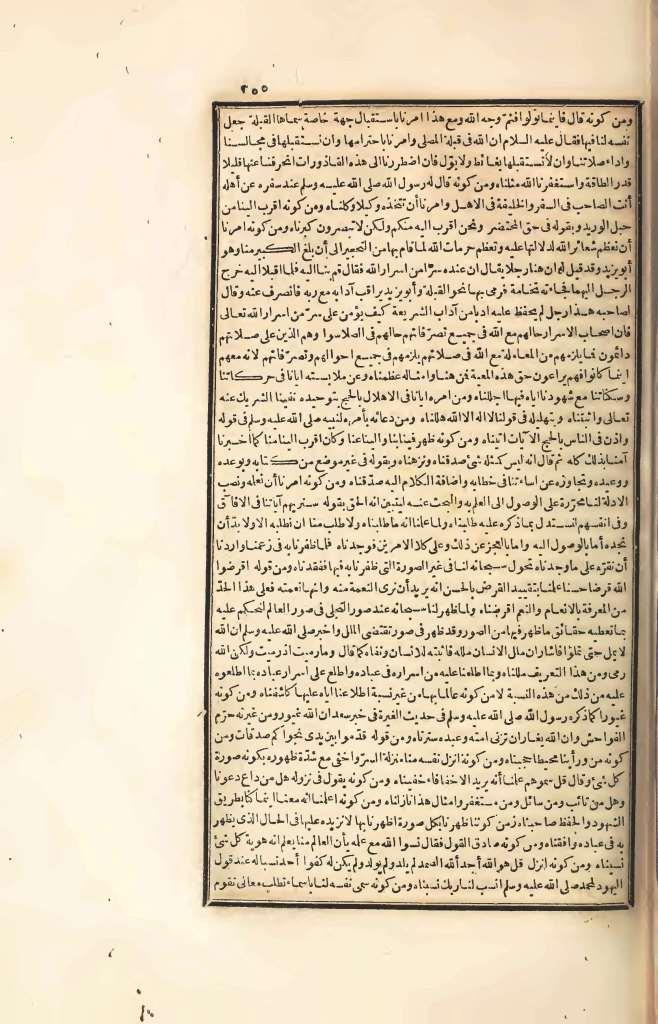 ٢٠٠
ومن كونه قال فأينما تولوا فثم وجه الله ومع هذا أمرنا باستقبال جهة خاصة سماها القبلة جعل
نفسه لنا فيها فقال عليه السلام ان الله في قبلة المصلي وأمرنا باحترامها وان نستقبلها في مجالسنا
وأداء صلاتنا وان لا نستقبلها بغائط ولا بول فان اضطررنا الى هذه القاذورات انحرفنا عنها قليلا
قدر الطاقة واستغفرنا الله مثلناه ومن كونه قال له رسول الله صلى الله عليه وسلم عند سفره عن أهله
أنت الصاحب في السفر والخليفة في الاهل وأمرنا أن نتخذه وكيلا وكلناه ومن كونه اقرب الينا من
حبل الوريد وبقوله في حق المحتضر ونحن اقرب اليه منكم ولكن لا تبصرون كبرناه ومن كونه أمرنا
أن نعظم شعائر الله لدلالتها عليه ونعظم حرمات الله لما قام بها من التحجير الى أن بلغ الكبير منا وهو
أبو يزيد وقد قيل له ان هنا رجلا يقال ان عنده سرّا من اسرار الله فقال قم بنا اليه فلما اقبلا اليه خرج
الرجل اليهما فجاءته نخامة فرمى بها نحو القبلة وأبو يزيد يراقب آدابه مع ربه فانصرف عنه وقال
لصاحبه هذا رجل لم يحفظ عليه ادبا من آداب الشريعة كيف يؤمن على سرّ من اسرار الله تعالى
فان اصحاب الاسرار حالهم مع الله في جميع تصرّفاتهم حالهم في الصلاة سوا وهم الذين على صلاتهم
دائمون فما يلزمهم من المعاملة مع الله في صلاتهم يلزمهم في جميع احوالهم وتصرّفاتهم لانه معهم
اينما كانوا فهم يراعون حق هذه المعية فمن هنا وامثاله عظمناه وعن ملابسته ايانا في حركاتنا
وسكناتنا مع شهودنا اياه فيها اجللناه ومن امره ايانا في الاهلال بالحج بتوحيده نفينا الشريك عنه
تعالى واثبتناه وبتهليله في قولنا لا اله الا الله هللناه ومن دعائه بأمره لنبيه صلى الله عليه وسلم في قوله
واذن في الناس بالحج الآيات اتيناه ومن كونه ظهر فينا بنا والينا عنا وكان اقرب الينا منا كما اخبرنا
آمنا بذلك كله ثم قال انه ليس كمثله شئ صدقناه ونزهناه وبقوله في غير موضع من كتابه وبوعده
ووعيده وتجاوزه عن اساءتنا في خطابه واضافة الكلام اليه صدّقناه ومن كونه امرنا أن نعلمه ونصب
الادلة لنا محررة على الوصول الى العلم به والبحث عنه ليتبين انه الحق بقوله سنريهم آياتنا في الآفاق
وفي انفسهم لنستدل بما ذكره عليه طلبناه ولما علمنا انه ما طلبناه ولا طلب منا ان نطلبه الا ولا بدّ أن
نجده أما بالوصول اليه وأما بالعجز عن ذلك وعلى كلا الامرين فوجدناه فلما ظفرنا به في زعمنا واردنا
أن نقرّه على ما وجدناه تحول سبحانه لنا في غير الصورة التي ظفرنا به فيها ففقدناه ومن قوله اقرضوا
الله قرضا حسنا علمنا بتقييد القرض بالحسن انه يريد أن نرى النعمة منه وانها نعمته فعلى هذا الحدّ
من المعرفة بالانعام والنعم اقرضناه ولما ظهر لنا سبحانه عند صور التجلي في صور العالم لنحكم عليه
بما تعطيه حقائق ما ظهر فيها من الصور وقد ظهر في صور تقتضي الملال واخبر صلى الله عليه وسلم ان الله
لا يمل حتى تملوا فاشار ان ملل الانسان ملله فاثبته للانسان ونفاه كما قال وما رميت اذ رميت ولكن الله
رمى ومن هذا التعريف مللناه وبما اطلعنا عليه من اسراره في عباده واطلع على اسرار عباده بما اطلعوه
عليه من ذلك من هذه النسبة لا من كونه عالما بها من غير نسبة اطلاعنا اياه عليها كاشفناه ومن كونه
غيورا كما ذكره رسول الله صلى الله عليه وسلم في حديث الغيرة في خبر سعد ان الله غيور ومن غيرته حرم
الفواحش وان الله يغار ان تزني امته وعبده سترناه ومن قوله قدّموا بين يدي نجواكم صدقات ومن
كونه من ورائنا محيطا حجبناه ومن كونه انزل نفسه منا منزلة السرّ واخفى مع شدّة ظهوره بكونه صورة
كل شئ وقال قل سموهم علمنا أنه يريد الاخفاء فاخفيناه ومن كونه يقول في نزوله هل من داع دعونا
وهل من تائب ومن سائل ومن مستغفر وامثال هذا نازلناه ومن كونه اعلمنا انه معنا اينما كنا بطريق
الشهود والحفظ صاحبناه ومن كوننا ظهرنا بكل صورة اظهرنا بها لا نزيده عليها في الحال الذي يظهر
به في عباده وافقناه ومن كونه صادق القول فقال نسوا الله مع علمه بأن العالم منا يعلم انه هوية كل شئ
نسيناه ومن كونه انزل قل هو الله أحد الله الصمد لم يلد ولم يولد ولم يكن له كفوا أحد نسبا له عند قول
اليهود لمحمد صلى الله عليه وسلم انسب لنا ربك نسبناه ومن كونه سمى نفسه لنا باسماء تطلب معاني تقوم